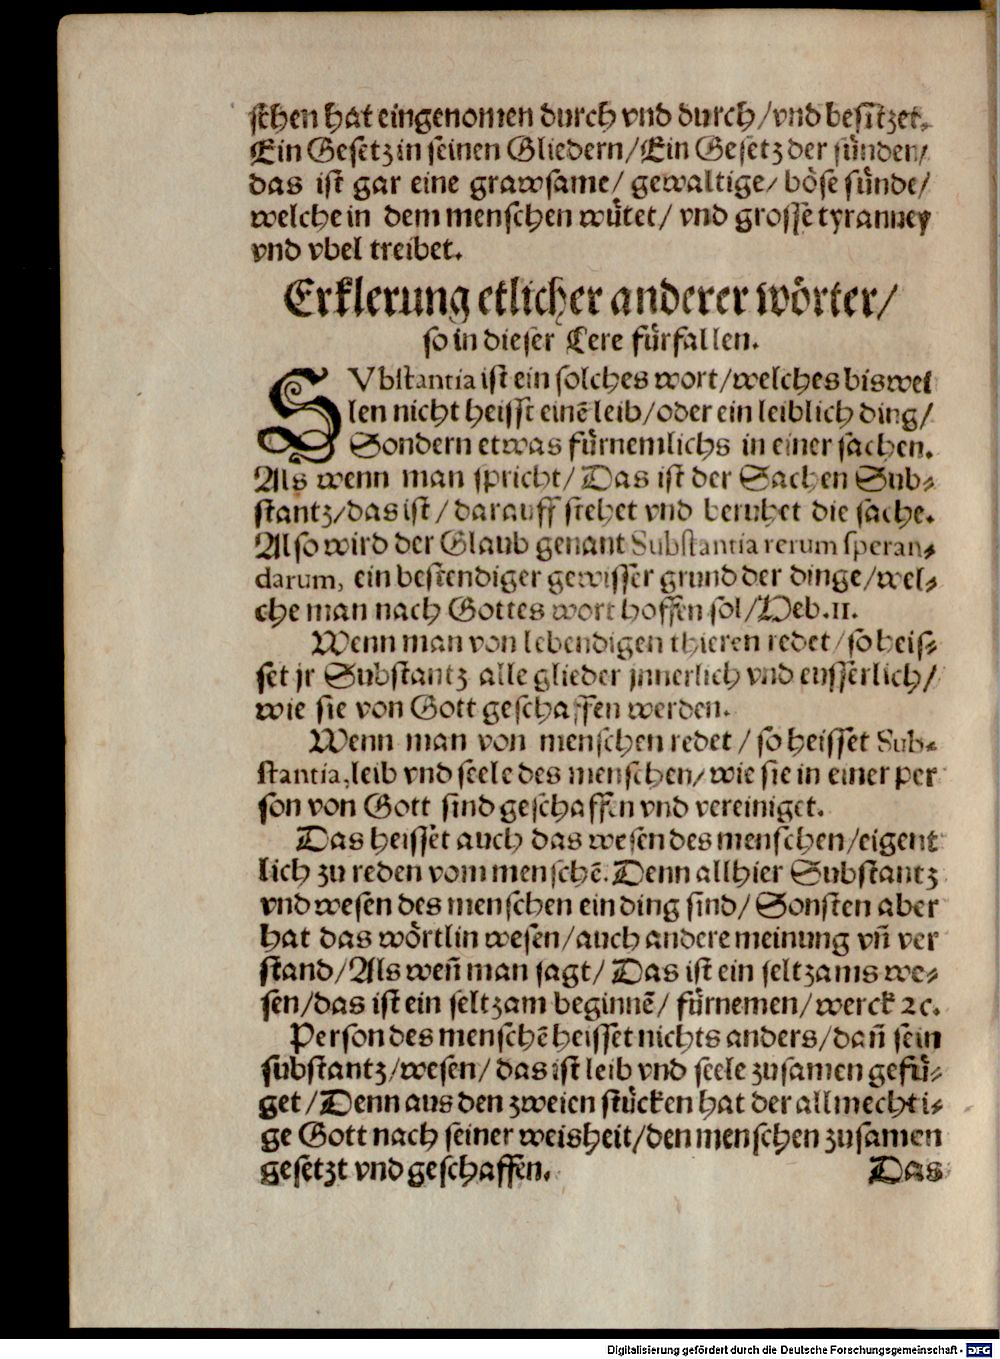 schen hat eingenomen durch vnd durch/vnd besitzet.
Ein Gesetz in seinen Gliedern/Ein Gesetz der sünden/
das ist gar eine grawsame/ gewaltige/ böse sünde/
welche in dem menschen wütet/ vnd grosse tyranney
vnd vbel treibet.
Erklerung etlicher anderer wörter/
so in dieser Lere fürfallen.
SVbstantia ist ein solches wort/welches biswei
len nicht heisst einē leib/oder ein leiblich ding/
Sondern etwas fürnemlichs in einer sachen.
Als wenn man spricht/ Das ist der Sachen Sub-
stantz/das ist/ darauff stehet vnd beruhet die sache.
Also wird der Glaub genant Substantia rerum speran-
darum, ein bestendiger gewisser grund der dinge/wel-
che man nach Gottes wort hoffen sol/Heb.11.
Wenn man von lebendigen thieren redet/so heis-
set jr Substantz alle glieder jnnerlich vnd eusserlich/
wie sie von Gott geschaffen werden.
Wenn man von menschen redet/ so heisset Sub-
stantia, leib vnd seele des menschen/ wie sie in einer per
son von Gott sind geschaffen vnd vereiniget.
Das heisset auch das wesen des menschen/eigent
lich zu reden vom menschē. Denn allhier Substantz
vnd wesen des menschen ein ding sind/ Sonsten aber
hat das wörtlin wesen/auch andere meinung vn̄ ver
stand/Als wen̄ man sagt/ Das ist ein seltzams we-
sen/das ist ein seltzam beginnē/ fürnemen/ werck ꝛc.
Person des menschē heisset nichts anders/dan̄ sein
substantz/wesen/ das ist leib vnd seele zusamen gefü-
get/Denn aus den zweien stücken hat der allmechti-
ge Gott nach seiner weisheit/den menschen zusamen
gesetzt vnd geschaffen. Das
Digitalisierung gefördert durch die Deutsche Forschungsgemeinschaft - DFG